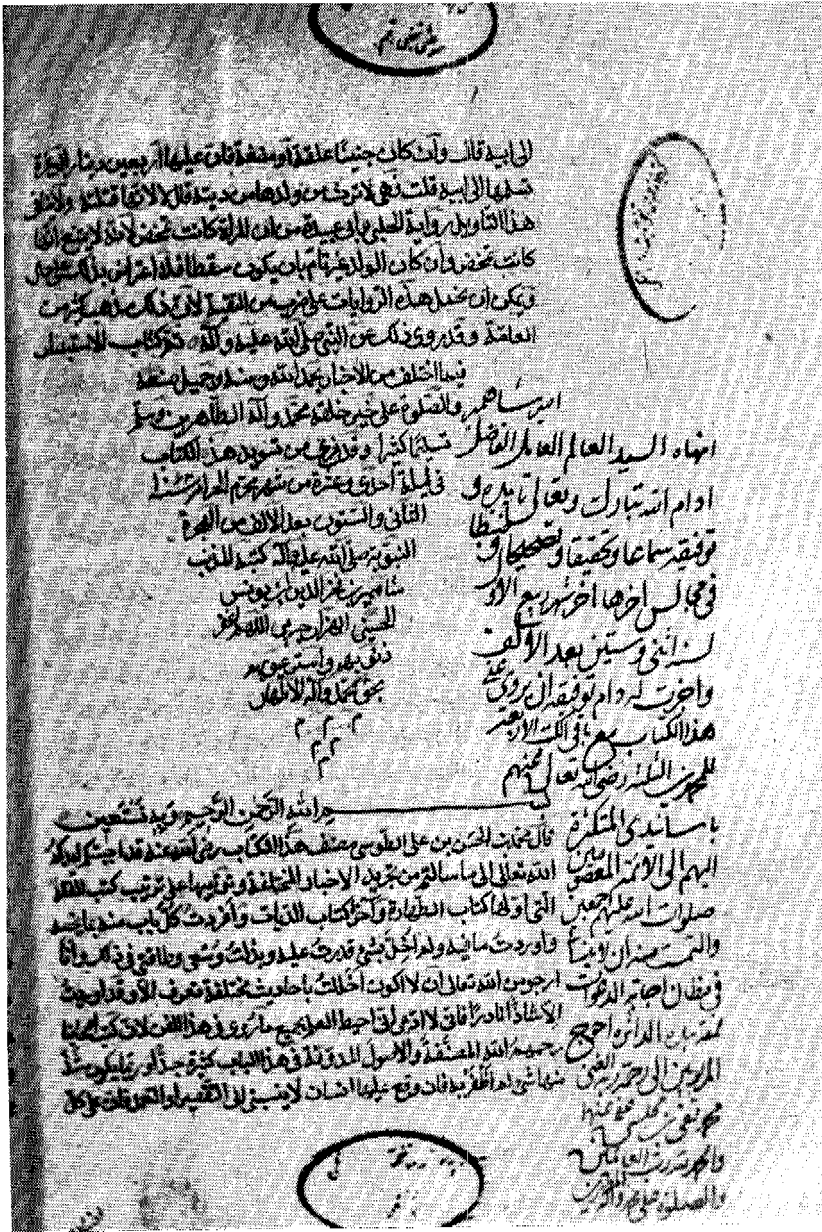 الى ابيه قال وان كان جنينا علقة او مضغة فان عليها اربعين دينارا او غرة
تسلمها الى ابيه قلت فهي لا ترث من ولدها من ديته قال لا لانها قتلته ولا ينافى
هذا التأويل رواية الحلبي وابي عبيدة من ان المراة كانت تمخض لانه لا يمتنع انها
كانت تمخض وان كان الولد غير تام بان يكون سقطا فلا اعتراض بذلك على حال
ويمكن ان تحمل هذه الروايات على ضرب من التقية لان ذلك مذهب كثير من
العامة وقد روى ذلك عن النبي صلى الله عليه وآله تم كتاب الاستبصار
فيما اختلف من الاخبار بحمد الله ومنه وجميل صنعه
والصلوة على خير خلقه محمد وآله الطاهرين وسلم
تسليما كثيرا وقد فرغ من تسويد هذا الكتاب
في ليلة احدى وعشرة من شهر محرم الحرام سنة
الثاني والستون بعد الالف من الهجرة
النبوية صلى الله عليه وآله كتبه المذنب
بن فخر الدين بن يونس
الحسيني اللهم اغفر
ذنوبهم واستر عيوبهم
بحق محمد وآله الاطهار
م م م
م م
م
امير شاهمير
انهاه السيد العالم العامل الفاضل
ادام الله تبارك وتعالى تاييده و
توفيقه سماعا وتحقيقا وتصحيحا وضبطا
في مجالس اخرها اخر شهر ربيع الاول
لسنة اثنى وستين بعد الالف
واجزت له دام توفيقه ان يروى عني
هذا الكتاب مع باقى الكتب الاربعة
للمحمدين الثلثة رضى الله تعالى عنهم
باسانيدى المتكثرة
اليهم الى الائمة المعصومين
صلوات الله عليهم اجمعين
والتمست منه ان لا ينسانى
في مظان اجابة الدعوات
نمقه بيده الداثرة احوج
المربوبين الى رحمة ربه الغنى
محمد تقى بن مجلسى عفى عنهما
والحمد لله رب العالمين
والصلوة على محمد وآله
بسم الله الرحمن الرحيم وبه نستعين
قال محمد بن الحسن بن على الطوسى مصنف هذا الكتاب رضى الله عنه قد اجبتكم ايدكم
الله تعالى الى ما سالتم من تجريد الاخبار المختلفة وترتيبها على ترتيب كتب الفقه
التى اولها كتاب الطهارة وآخرها كتاب الديات وافردت كل باب منه بما يخصه
واوردت ما فيه ولم اخل بشئ قدرت عليه وبذلت وسعى وطاقتى في ذلك وانا
ارجو من الله تعالى ان لا اكون اخللت باحاديث مختلفة تعرف الا وقد اوردتها
الا شاذا نادرا فانى لا ادعى انى احيط العلم بجميع ما روى في هذا الفن لان كتب اصحابنا
رحمهم الله المصنفة والاصول المدونة في هذا الباب كثيرة جدا وربما يكون شذ
منها شئ لم اظفر به فان وقع عليها انسان لا ينسبنى الى التقصير او التعمد فان على كل